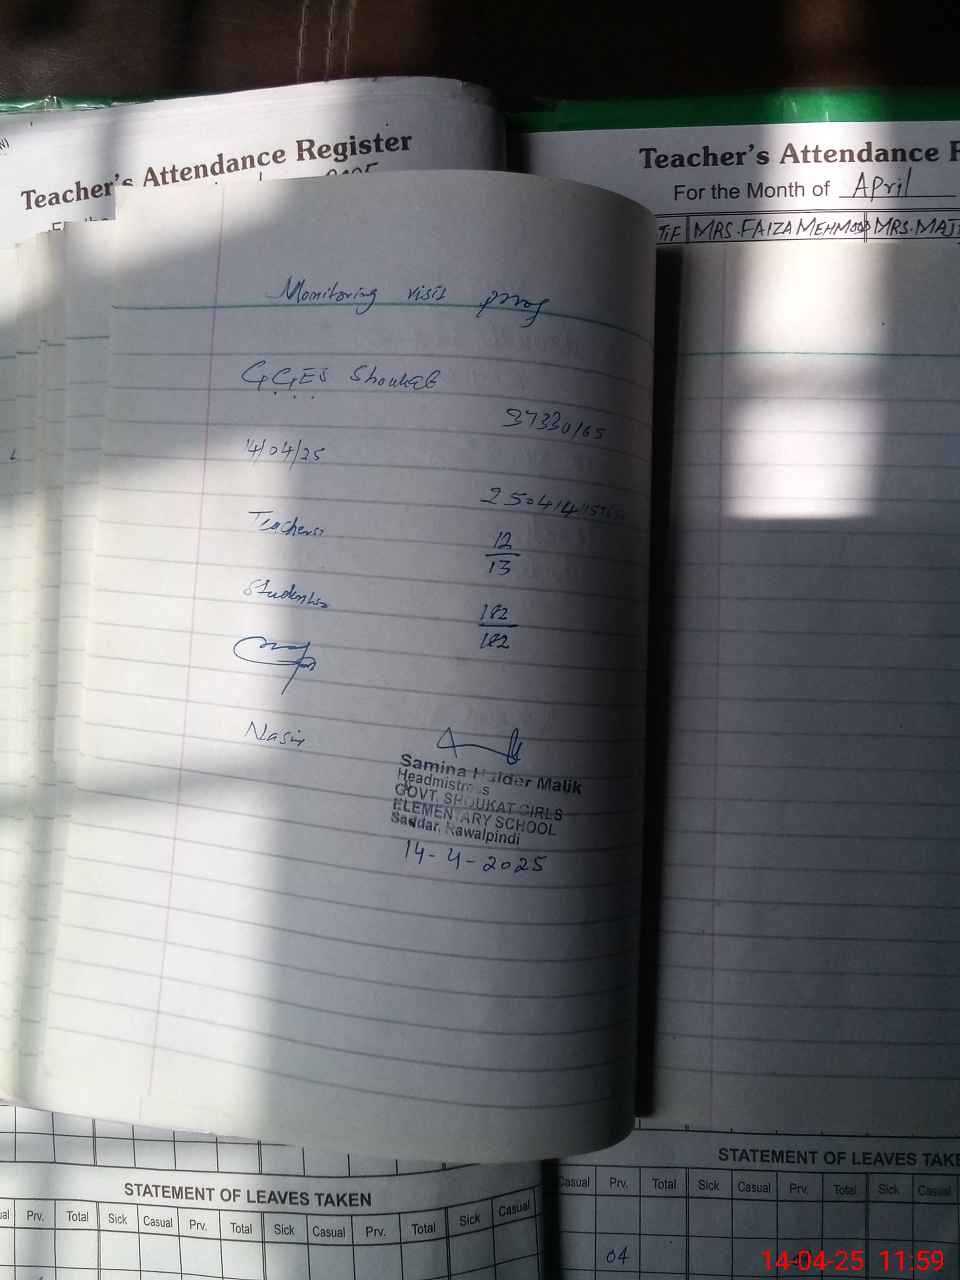 Teacher's Attendance Register
Teacher's Attendance
For the Month of April
MRS. FAIZA MEHMOOD MRS.
Monitoring visit
GGES Shoukat
37330165
14/04/25
250414
Teachers
12
13
Students
182
182
Nasir
Samina Haider Malik
Headmistress
GOVT. SHOUKAT GIRLS
ELEMENTARY SCHOOL
Saddar, Rawalpindi
14-4-2025
STATEMENT OF LEAVES TAKEN
Prv. Total Sick Casual Prv. Total Sick Casual Prv. Total Sick Casual
STATEMENT OF LEAVES
Casual Prv. Total Sick Casual Prv. Total Sick Casual
04
14-04-25 11:59